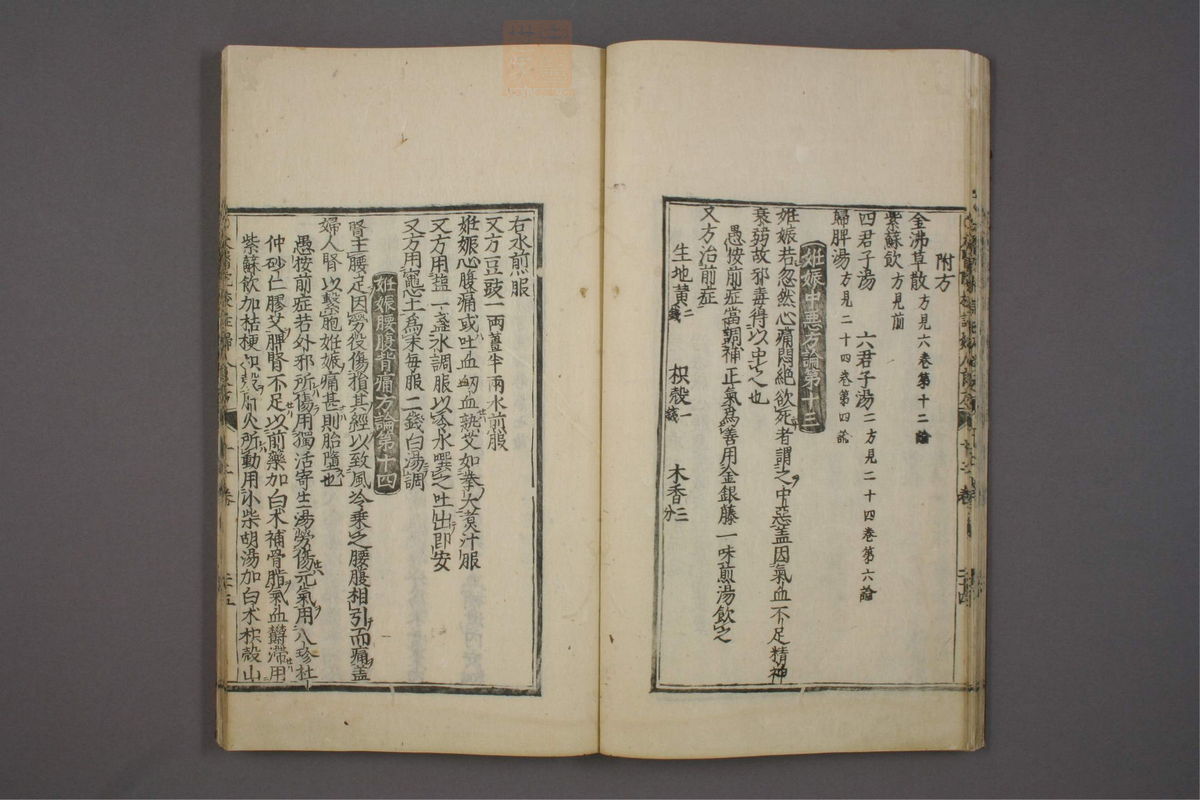 附方
金沸草散方見六卷第十二論
紫蘇飲方見前
四君子湯 六君子湯二方見二十四卷第六論
歸脾湯方見二十四卷第四論
妊娠中惡方論第十三
妊娠若忽然心痛悶絕欲死者謂之中惡盖因氣血不足精神
衰弱故邪毒得以中之也
愚按前症當調補正氣爲善用金銀藤一味煎湯飲之
又方治前症
生地黄二錢 枳殼一錢 木香三分
右水煎服
又方豆豉一兩 半兩水煎服
妊娠心腹痛或吐血衂血熟艾如拳大煑汁服
又方用塩一盞水調服以冷水噀之吐出即安
又方用竈土爲末每服二錢白湯調
妊娠腰腹背痛方論第十四
腎主腰足因勞役傷損其經以致風冷乗之腰腹相引而痛盖
婦人腎以繫胞妊娠痛甚則胎墮也
愚按前症若外邪所傷用獨活寄生湯勞傷元氣用八珍杜
仲砂仁膠艾脾腎不足以前藥加白朮補骨脂氣血欝滯用
紫蘇飲加桔梗枳殼肝火所動用小柴胡湯加白朮枳殼山
十二卷